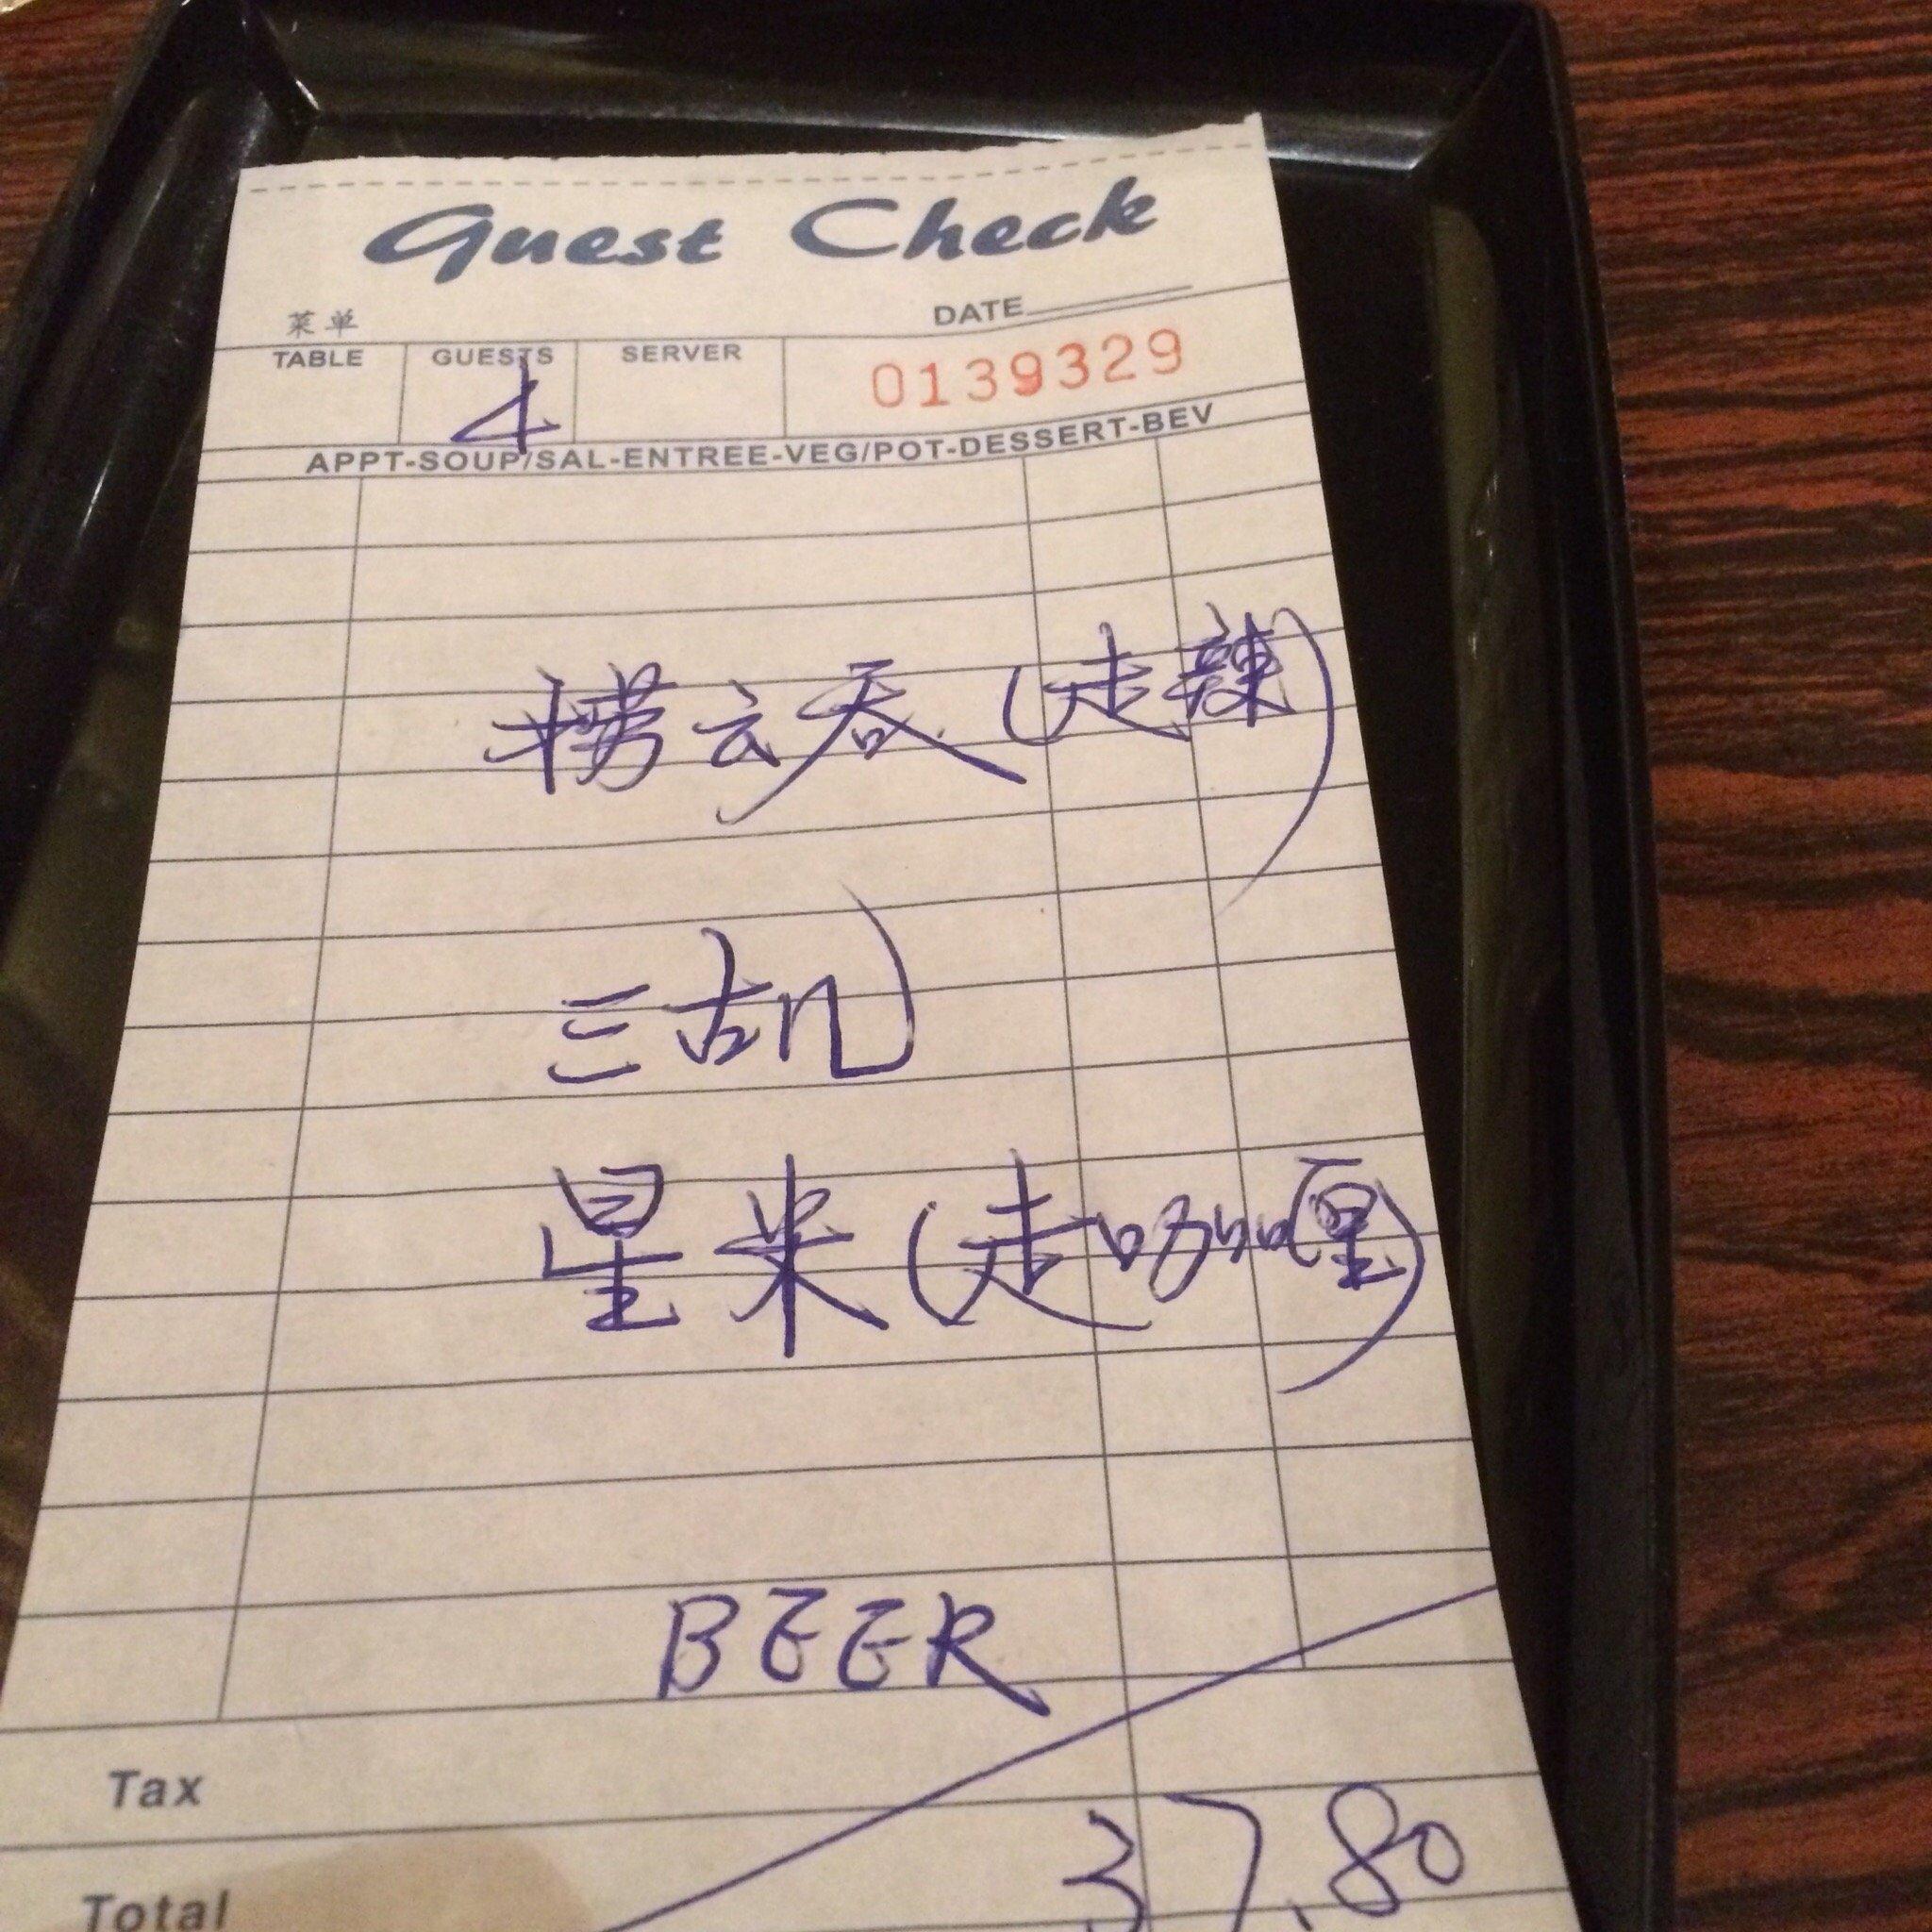 Guest Check
菜单
DATE
TABLE GUESTS SERVER 0139329
4
APPT-SOUP/SAL-ENTREE-VEG/POT-DESSERT-BEV
捞云吞(走辣)
三古几
星米(走咖喱)
BEER
Tax
37.80
Total